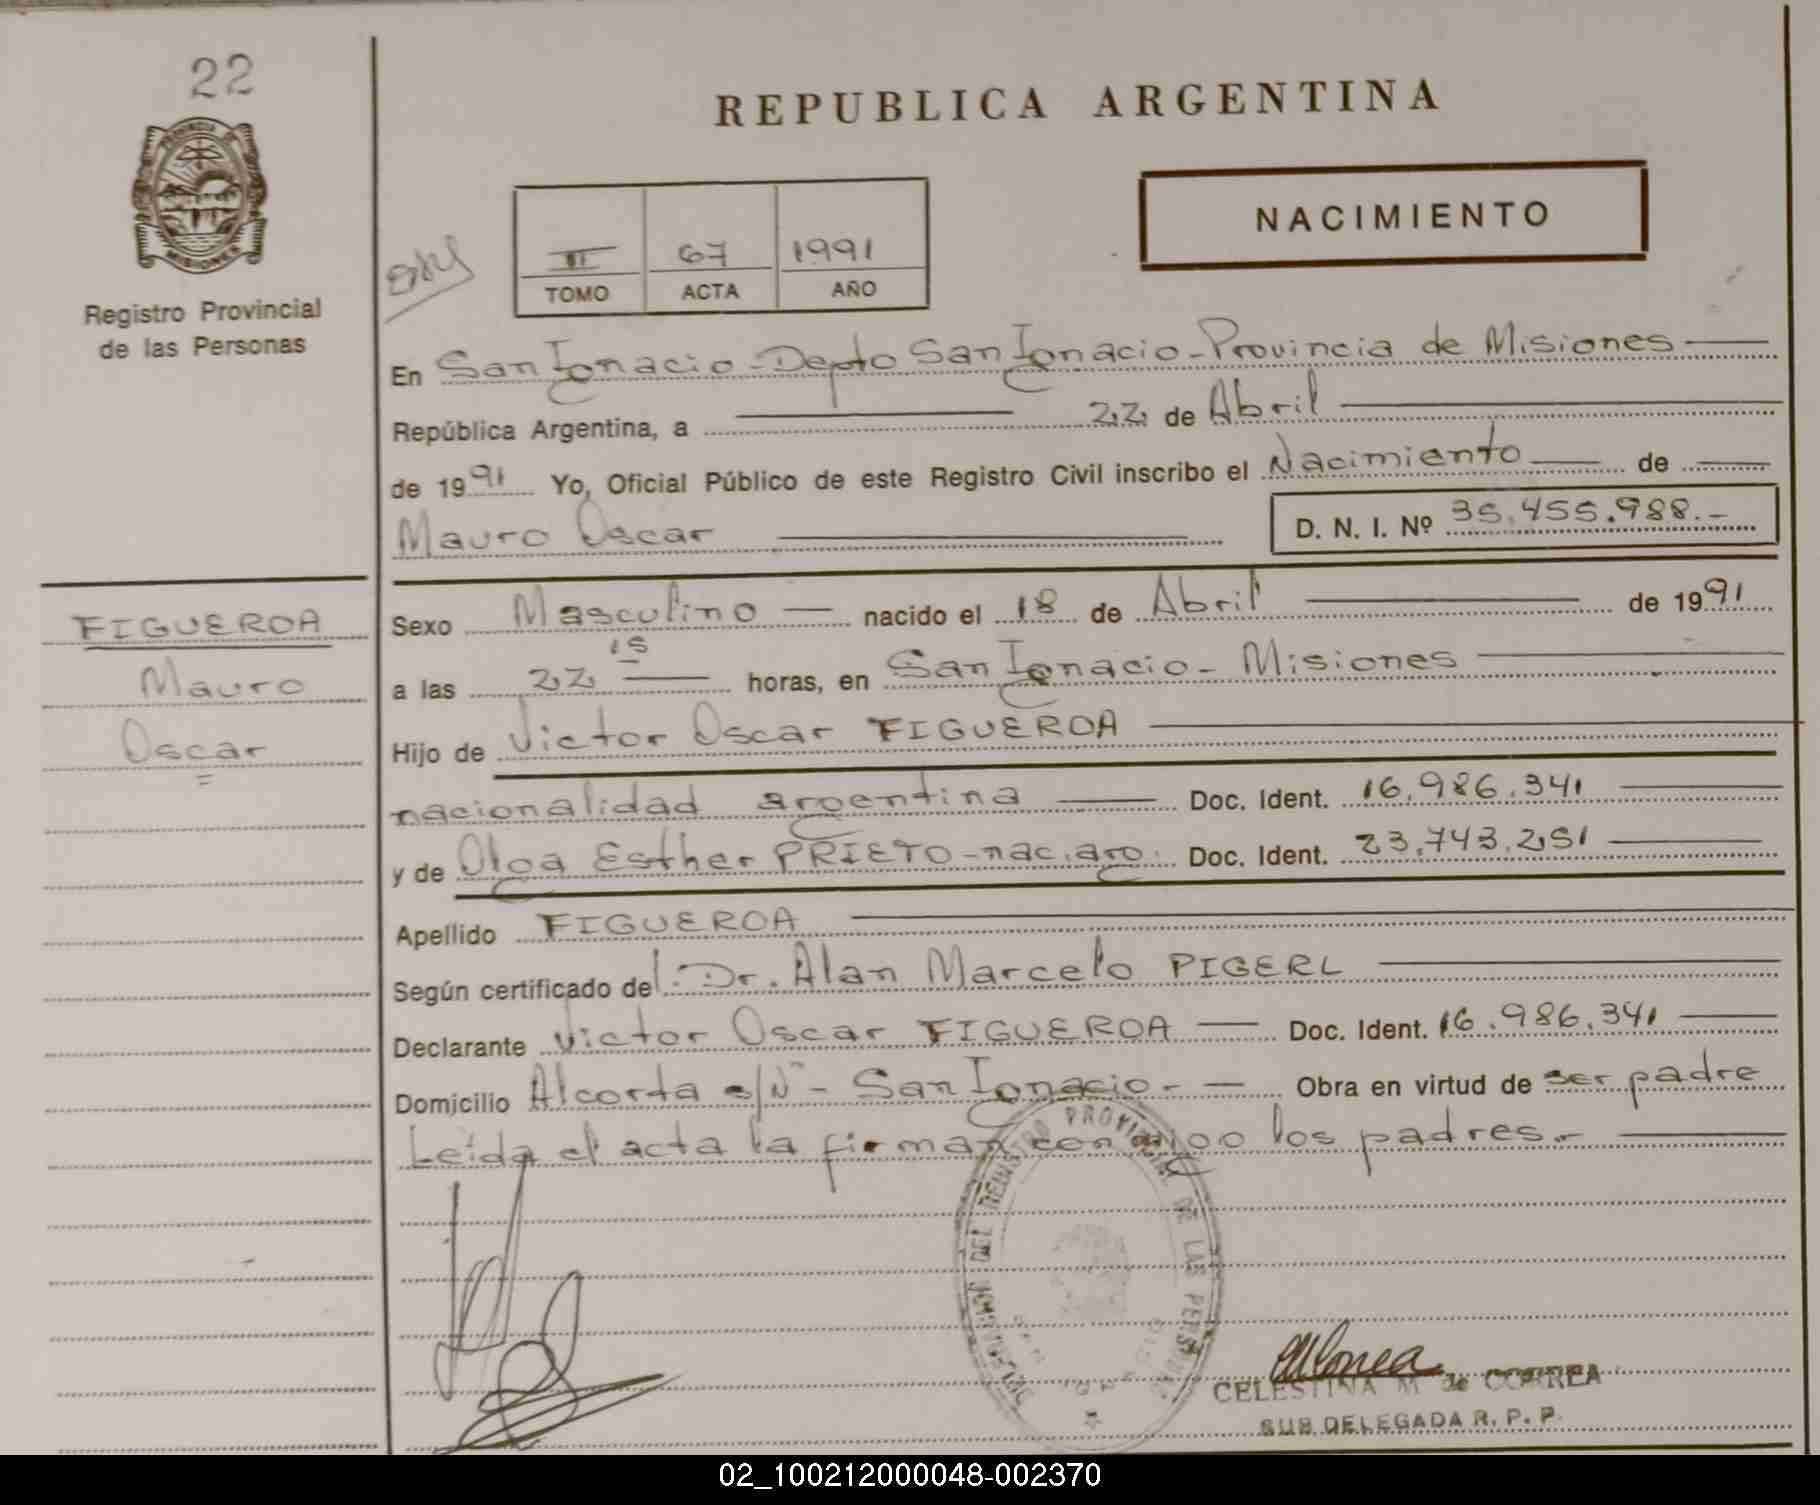 22
PROVINCIA DE
MISIONES
Registro Provincial
de las Personas
REPUBLICA ARGENTINA
NACIMIENTO
II 67 1991
TOMO ACTA AÑO
En San Ignacio - Depto San Ignacio - Provincia de Misiones
República Argentina, a 22 de Abril
de 1991 Yo, Oficial Público de este Registro Civil inscribo el Nacimiento de
Mauro Oscar D. N. I. Nº 35.455.988.-
FIGUEROA
Mauro
Oscar
Sexo Masculino nacido el 18 de Abril de 1991
a las 22 15 horas, en San Ignacio - Misiones
Hijo de Victor Oscar FIGUEROA
nacionalidad argentina Doc. Ident. 16.986.341
y de Olga Esther PRIETO - nac. arg. Doc. Ident. 23.743.251
Apellido FIGUEROA
Según certificado del: Dr. Alan Marcelo PIGERL
Declarante Victor Oscar FIGUEROA Doc. Ident. 16.986.341
Domicilio Alcorta s/Nº - San Ignacio.- Obra en virtud de ser padre
Leída el acta la firman conmigo los padres.-
DEL REGISTRO PROVINCIAL DE LAS PERSONAS
SAN IGNACIO
CELESTINA M. de CORREA
SUB DELEGADA R. P. P.
02_100212000048-002370